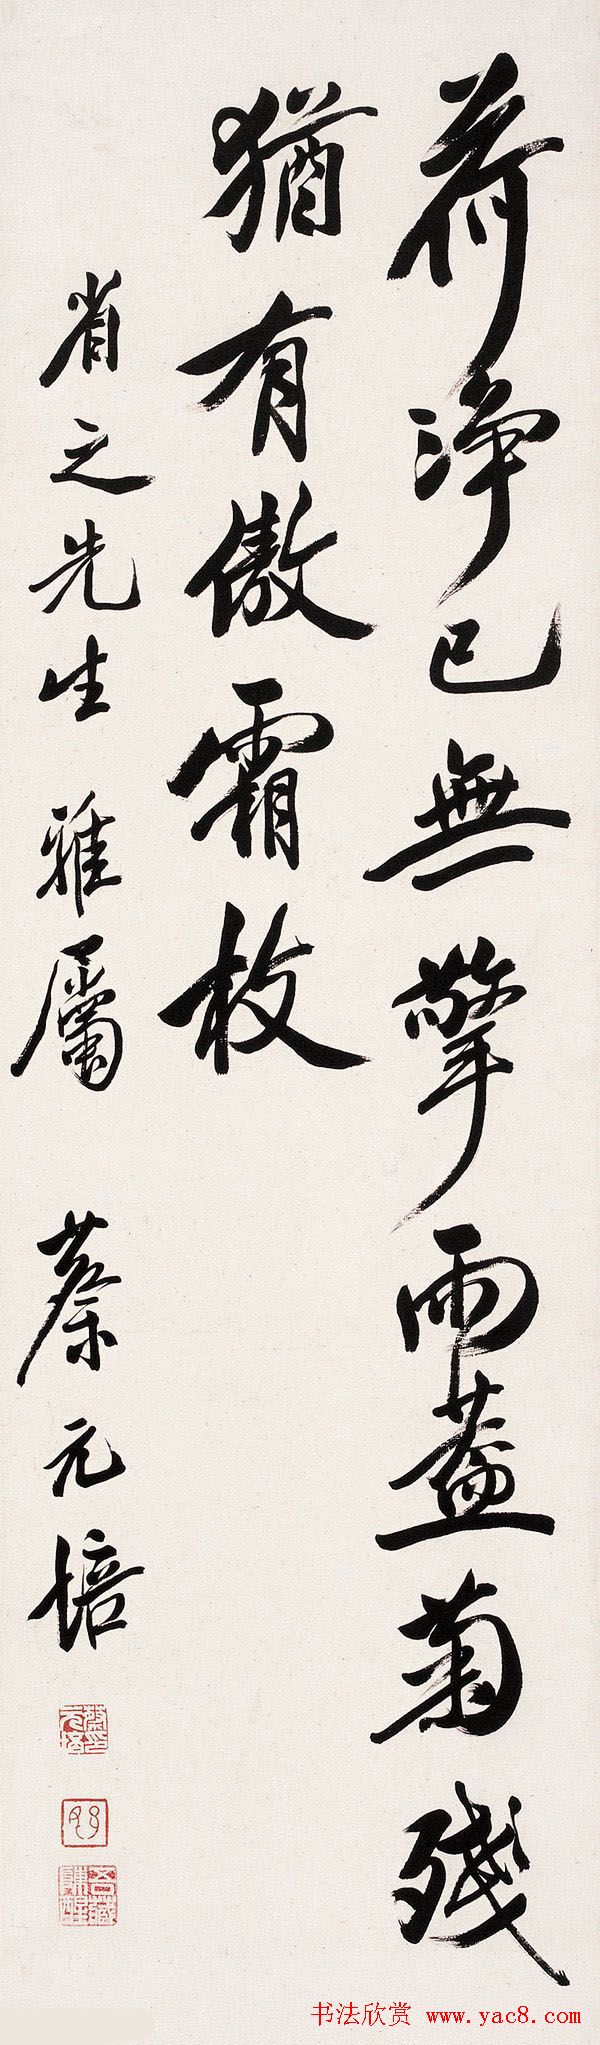 荷淨已無擎雨蓋菊殘
猶有傲霜枝
省之先生雅屬 蔡元培
书法欣赏 www.yac8.com